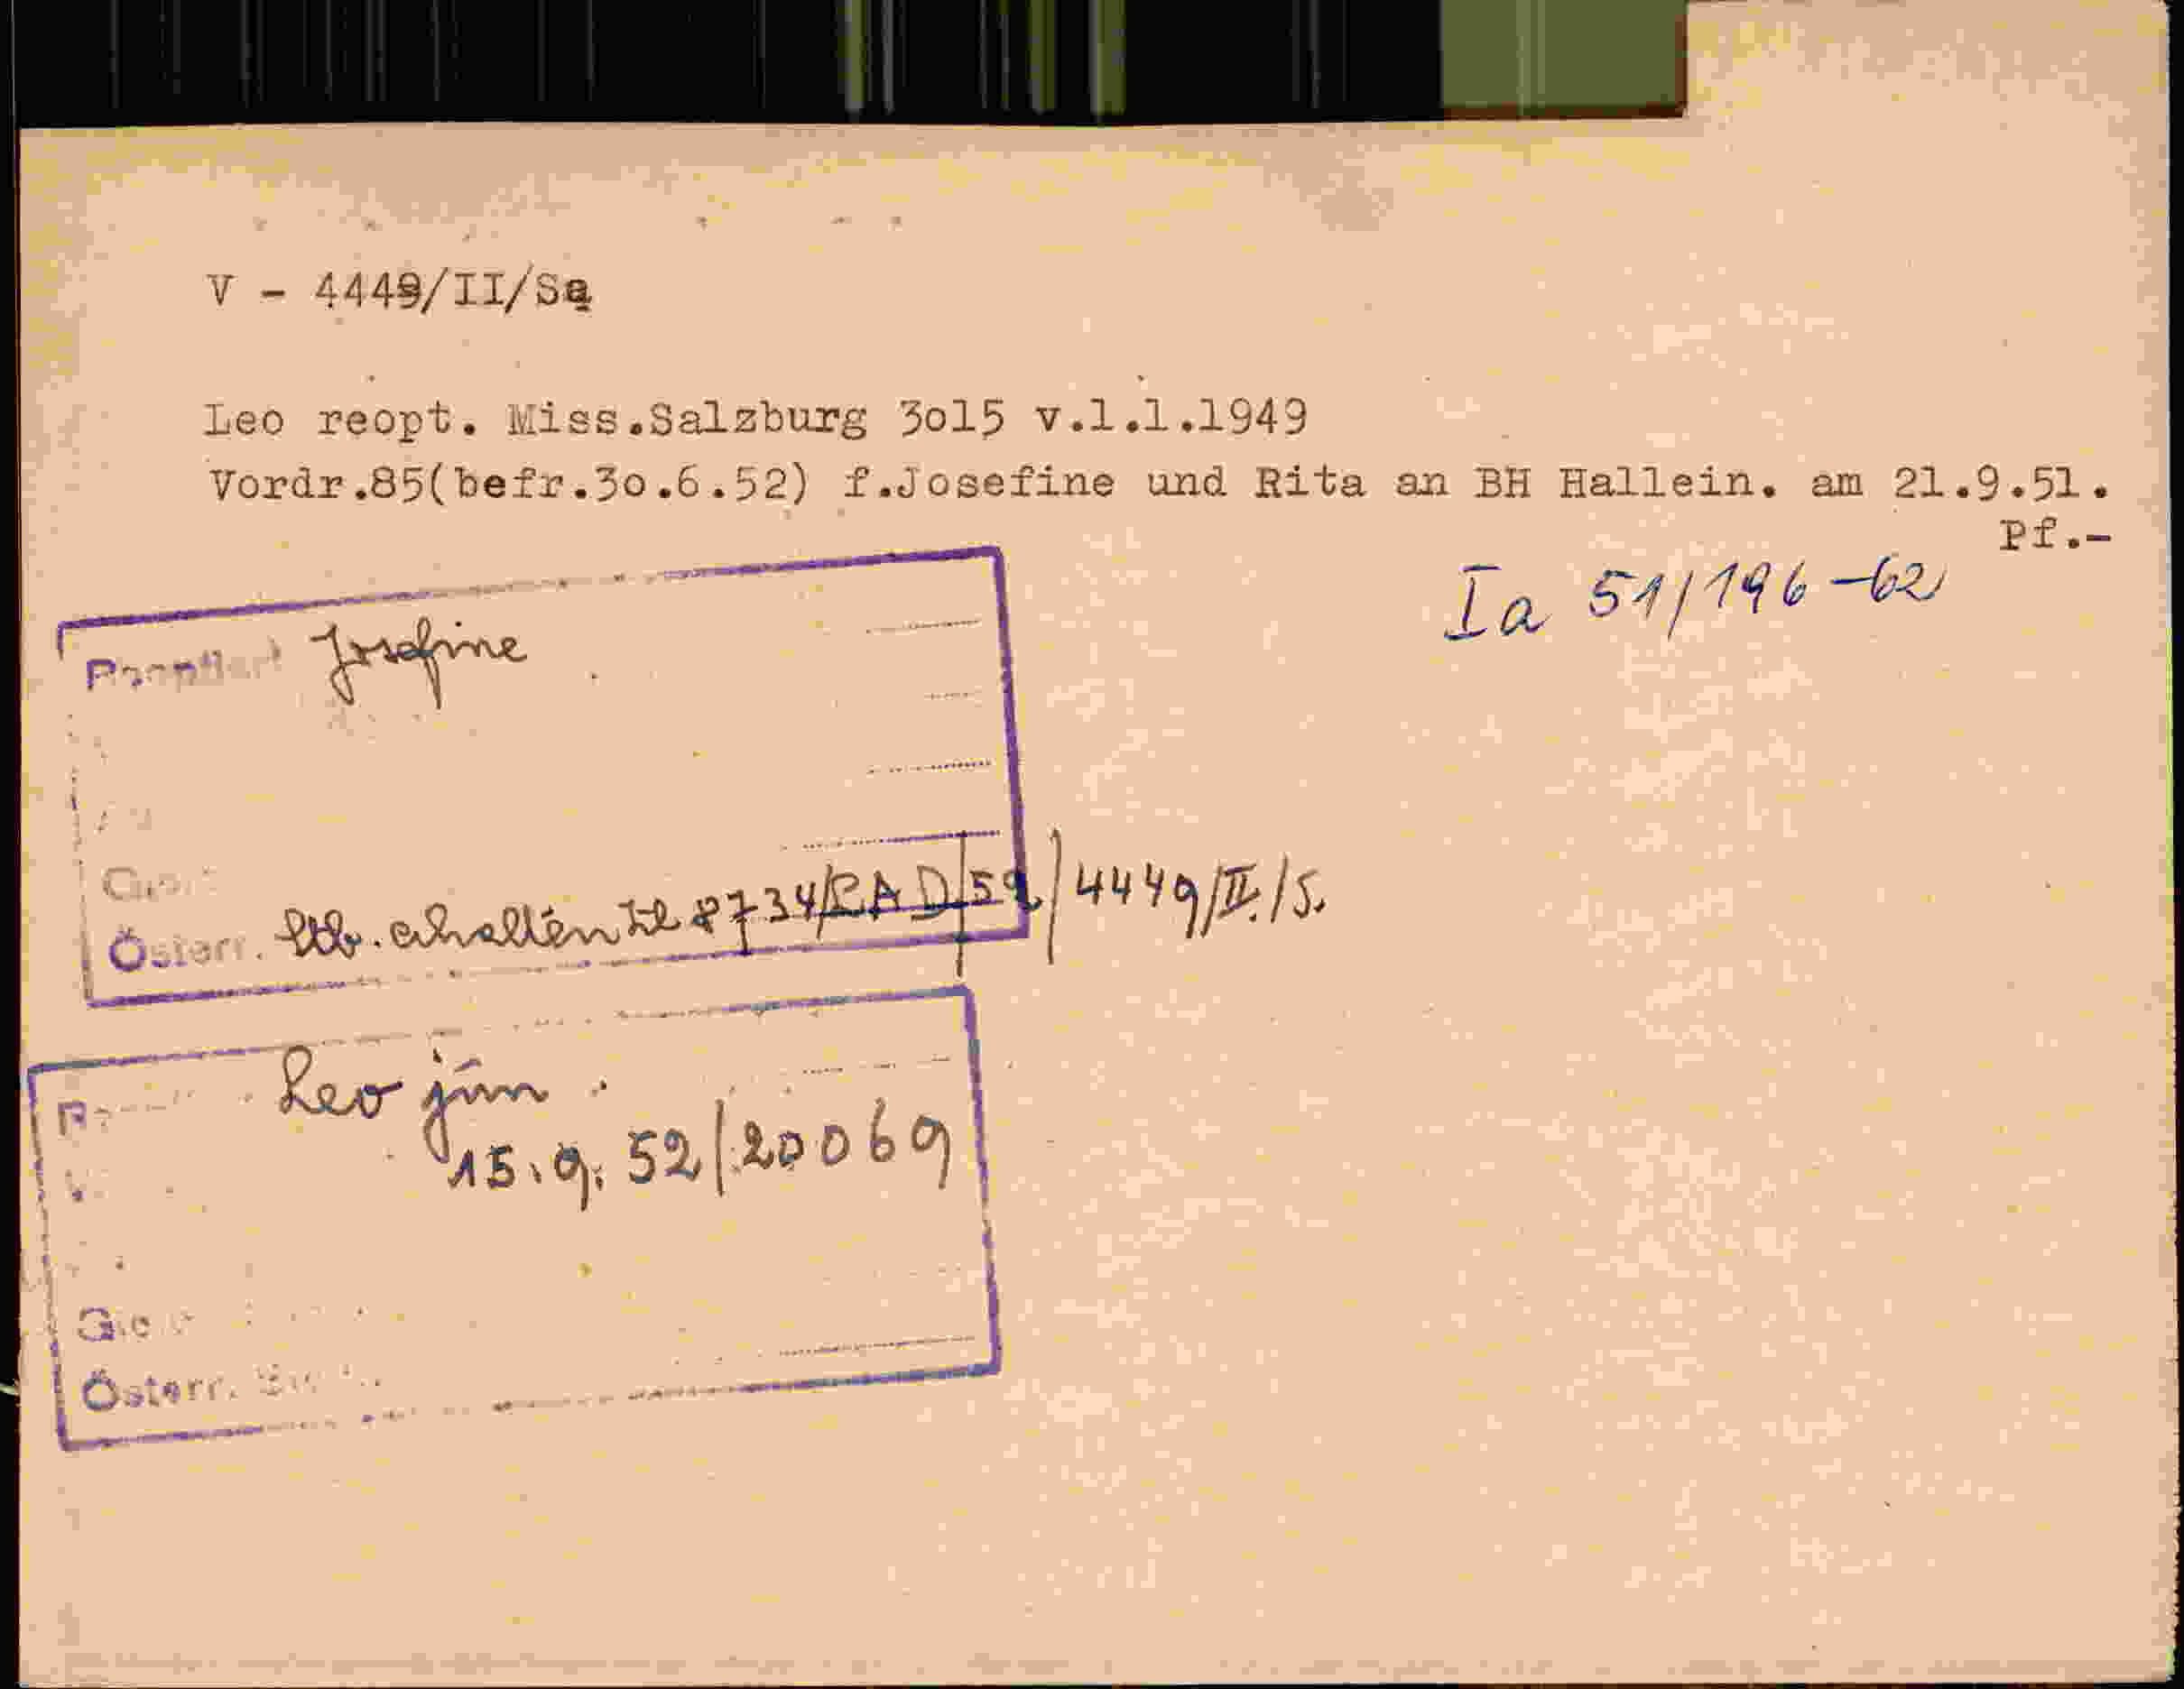 V - 4449/II/Sa
Leo reopt. Miss.Salzburg 3o15 v.1.1.1949
Vordr.85(befr.3o.6.52) f.Josefine und Rita an BH Hallein. am 21.9.51.
Pf.-
Ia 51/196-62
Josefine
Österr. Stb. erhalten Zl 8734/RAD/52/4449/II./S.
Leo jun.
15.9.52/20069
Österr.